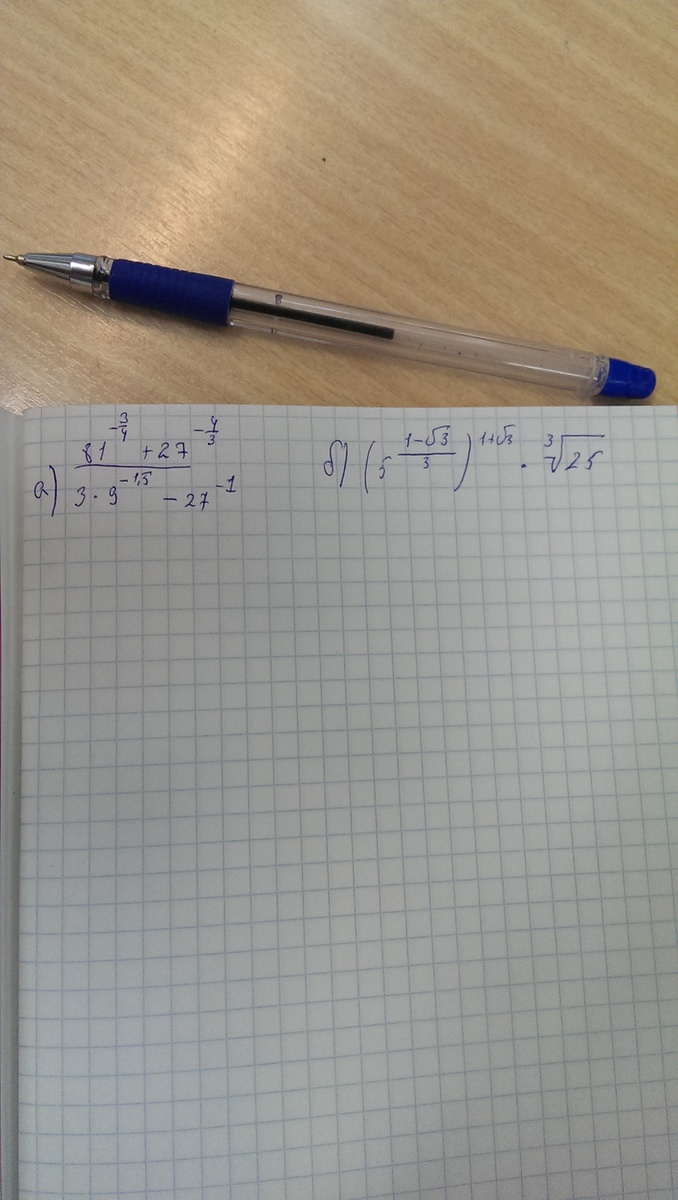 а) (81^(-3/4) + 27^(-4/3)) / (3 · 9^(-1,5) - 27^(-1))
б) (5^((1-√3)/3))^(1+√3) · ∛25